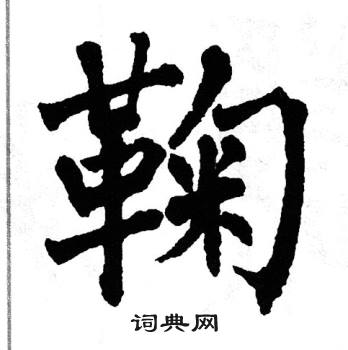 鞠
词典网